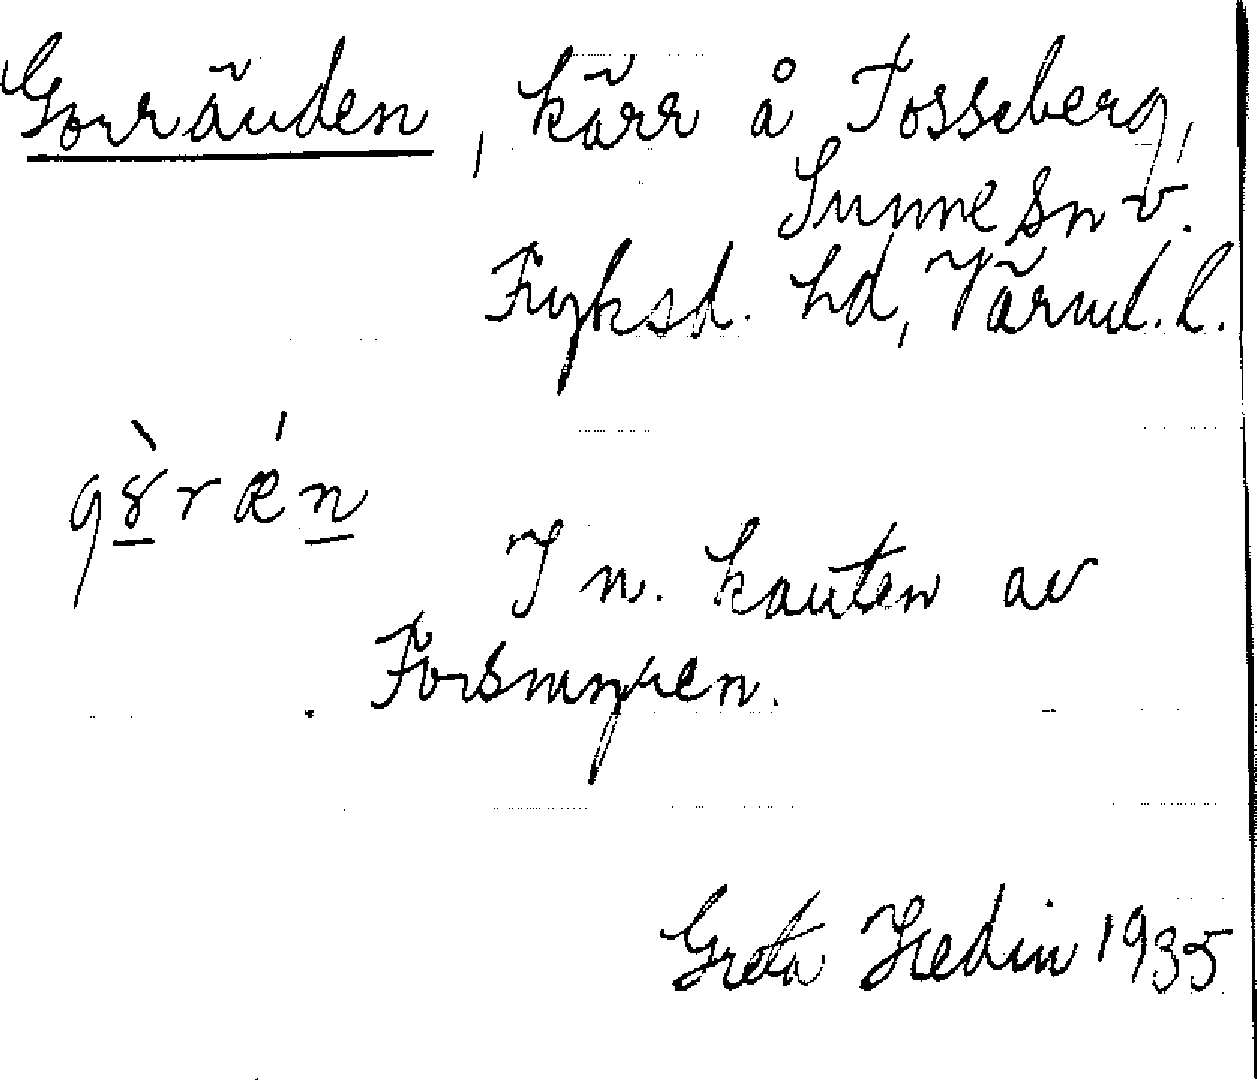 Gorränden, kärr å Fosseberg,
Sunne sn v.
Fryksd. hd, Värml. l.
I n. kanten av
Forsmyren.
Greta Hedin 1935